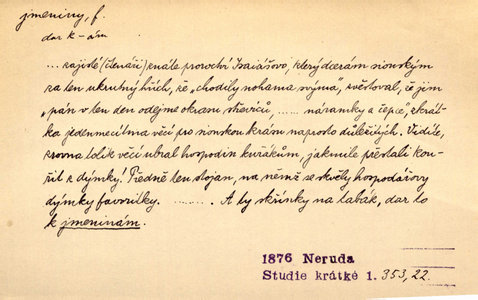 jmeniny, f.
dar k-ám
... zajisté (čtenáři) znáte proroctví Isaiášovo, který dcerám sionským
za ten ukrutný hřích, že „chodily nohama svýma", zvěstoval, že jim
„pán v ten den odejme okrasu střevíců, ...... náramky a čepce", zkrát-
ka jedenmecítma věcí pro sionskou krásu naprosto důležitých. Vidíte,
zrovna tolik věcí ubral hospodin kuřákům, jakmile přestali kou-
řit z dýmky! Předně ten stojan, na němž se skvěly hospodářovy
dýmky favoritky. ........ A ty skřínky na tabák, dar to
k jmeninám.
1876 Neruda
Studie krátké 1. 353, 22.